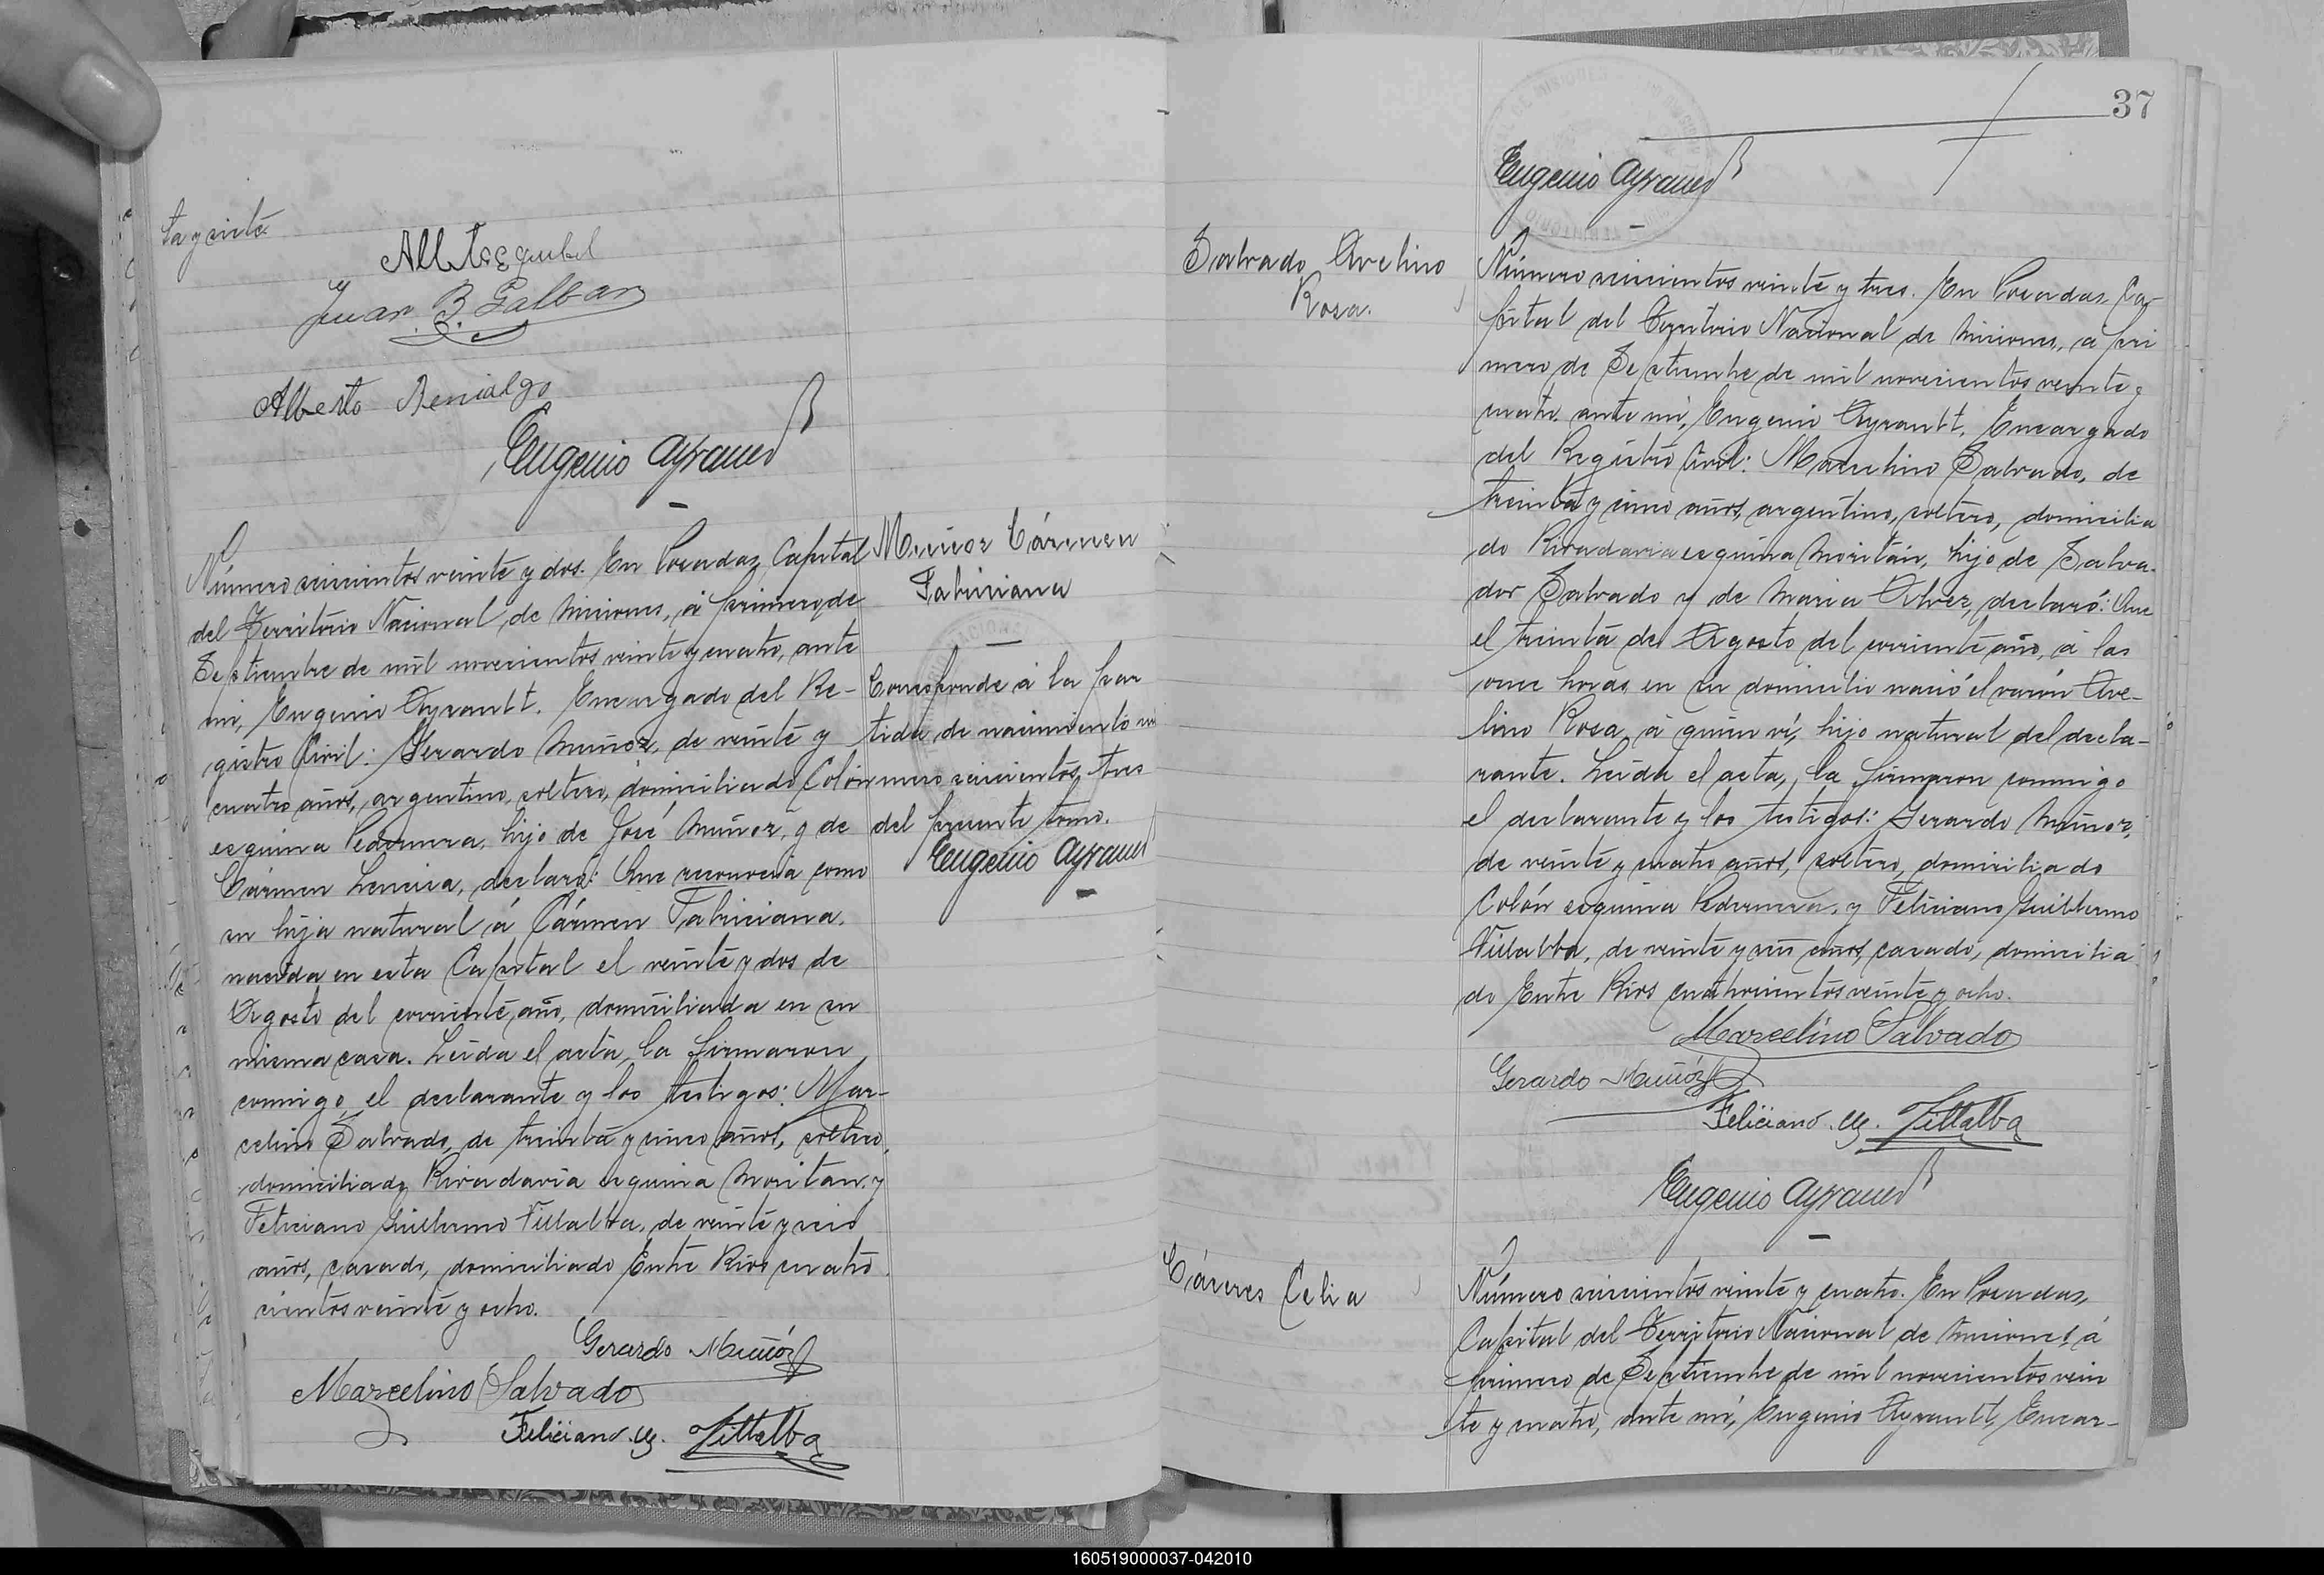 ta y siete
Juan B. Galban
Alberto
Eugenio Ayrault
Número seiscientos veinte y dos. En Posadas, Capital
del Territorio Nacional, de Misiones, á primero de
Septiembre de mil novecientos veinte y cuatro, ante
mi, Eugenio Ayrault. Encargado del Re-
gistro Civil: Gerardo Muñoz, de veinte y
cuatro años, argentino, soltero, domiciliado Colón
esquina Pedernera, hijo de José Muñoz, y de
Cármen, declaró: Que reconocia como
su hija natural á Cármen Fabriciana.
nacida en esta Capital el veinte y dos de
Agosto del corriente año, domiciliada en su
misma casa. Leida el acta, la firmaron
conmigo, el declarante y los testigos: Mar-
celino Salvado, de treinta y cinco años, soltero,
domiciliado Rivadavia esquina Moritan, y
Feliciano Guillermo Villalba, de veinte y seis
años, casado, domiciliado Entre Rios cuatro
cientos veinte y ocho.
Gerardo Muñóz
Marcelino Salvado
Feliciano G. Villalba
Munoz Cármen
Fabriciana
Corresponde á la par
tida de nacimiento nú
mero seiscientos tres
del presente tomo.
Eugenio Ayrault
37
Eugenio Ayrault
Salvado Avelino
Rosa.
Número seiscientos veinte y tres. En Posadas, Ca-
pital del Territorio Nacional de Misiones, á pri
mero de Septiembre de mil novecientos veinte y
cuatro. ante mi, Eugenio Ayrault. Encargado
del Registro Civil: Marcelino Salvado, de
treinta y cinco años, argentino, soltero, domicilia
do Rivadavia esquina Moritán, hijo de Salva-
dor Salvado y de Maria Alvez, declaró: Que
el treinta de Agosto del corriente año, á las
once horas, en su domicilio nació el varón Ave-
lino Rosa, á quien ví, hijo natural del decla-
rante. Leida el acta, la firmaron conmigo
el declarante y los testigos: Gerardo Muñoz,
de veinte y cuatro años, soltero, domiciliado
Colón esquina Pedernera, y Feliciano Guillermo
Villalba, de veinte y seis años, casado, domicilia
do Entre Rios cuatrocientos veinte y ocho.
Marcelino Salvado
Gerardo Muñóz
Feliciano G. Villalba
Eugenio Ayrault
Cáceres Celia
Número seiscientos veinte y cuatro. En Posadas,
Capital del Territorio Nacional de Misiones, á
primero de Septiembre de mil novecientos vein
te y cuatro, ante mi, Eugenio Ayrault, Encar-
160519000037-042010